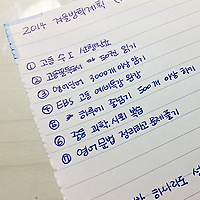 2014 겨울방학계획
① 고등 수학 선행학습
② 겨울필독도서 50권 읽기
③ 영어단어 3000개 이상 암기
④ EBS 고등 예비특강 완강
⑤ 하루에 줄넘기 500개 이상 하기
⑥ 중등 과학, 사회 복습
⑦ 영어문법 정리하고 문제풀기
하나라도